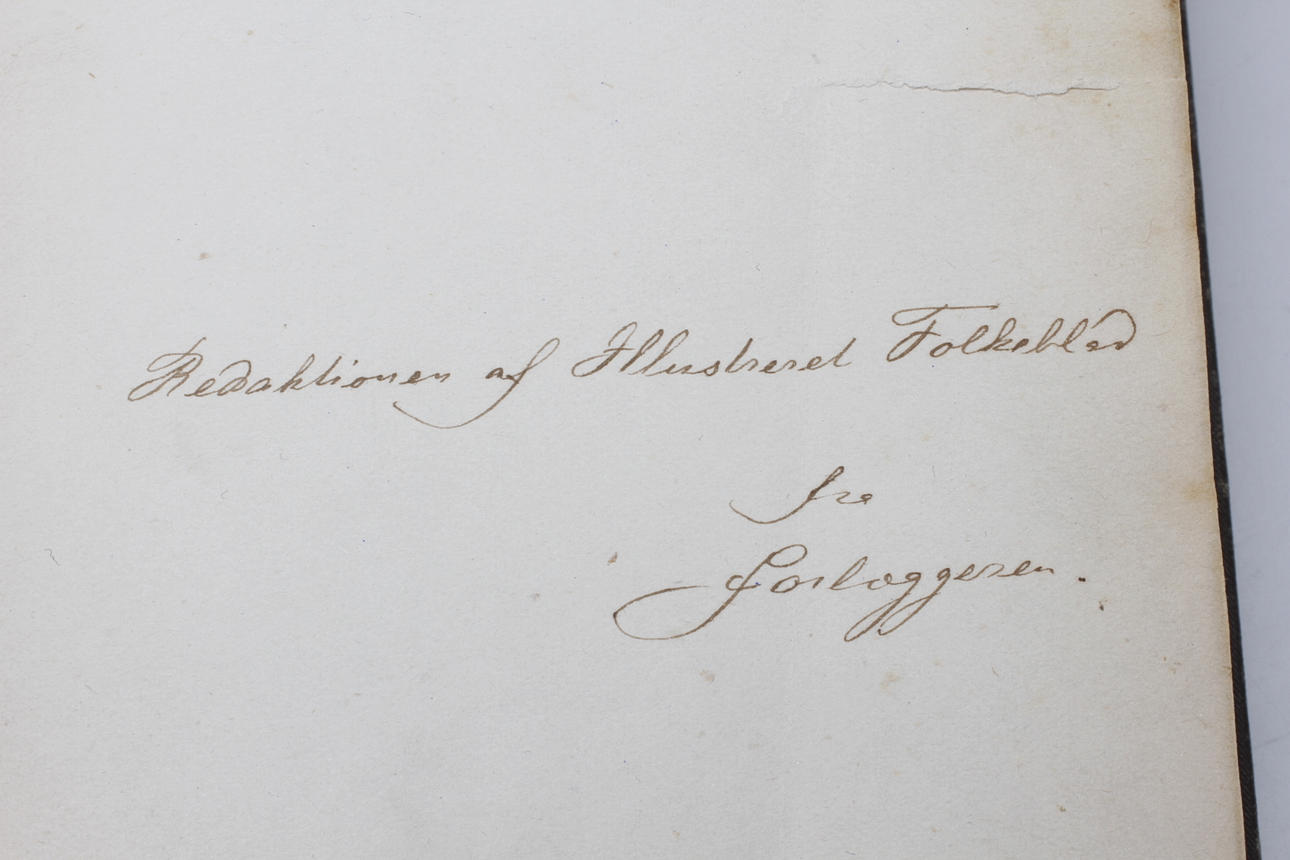 Redaktionen af Illustreret Folkeblad
fra
Forlæggeren.